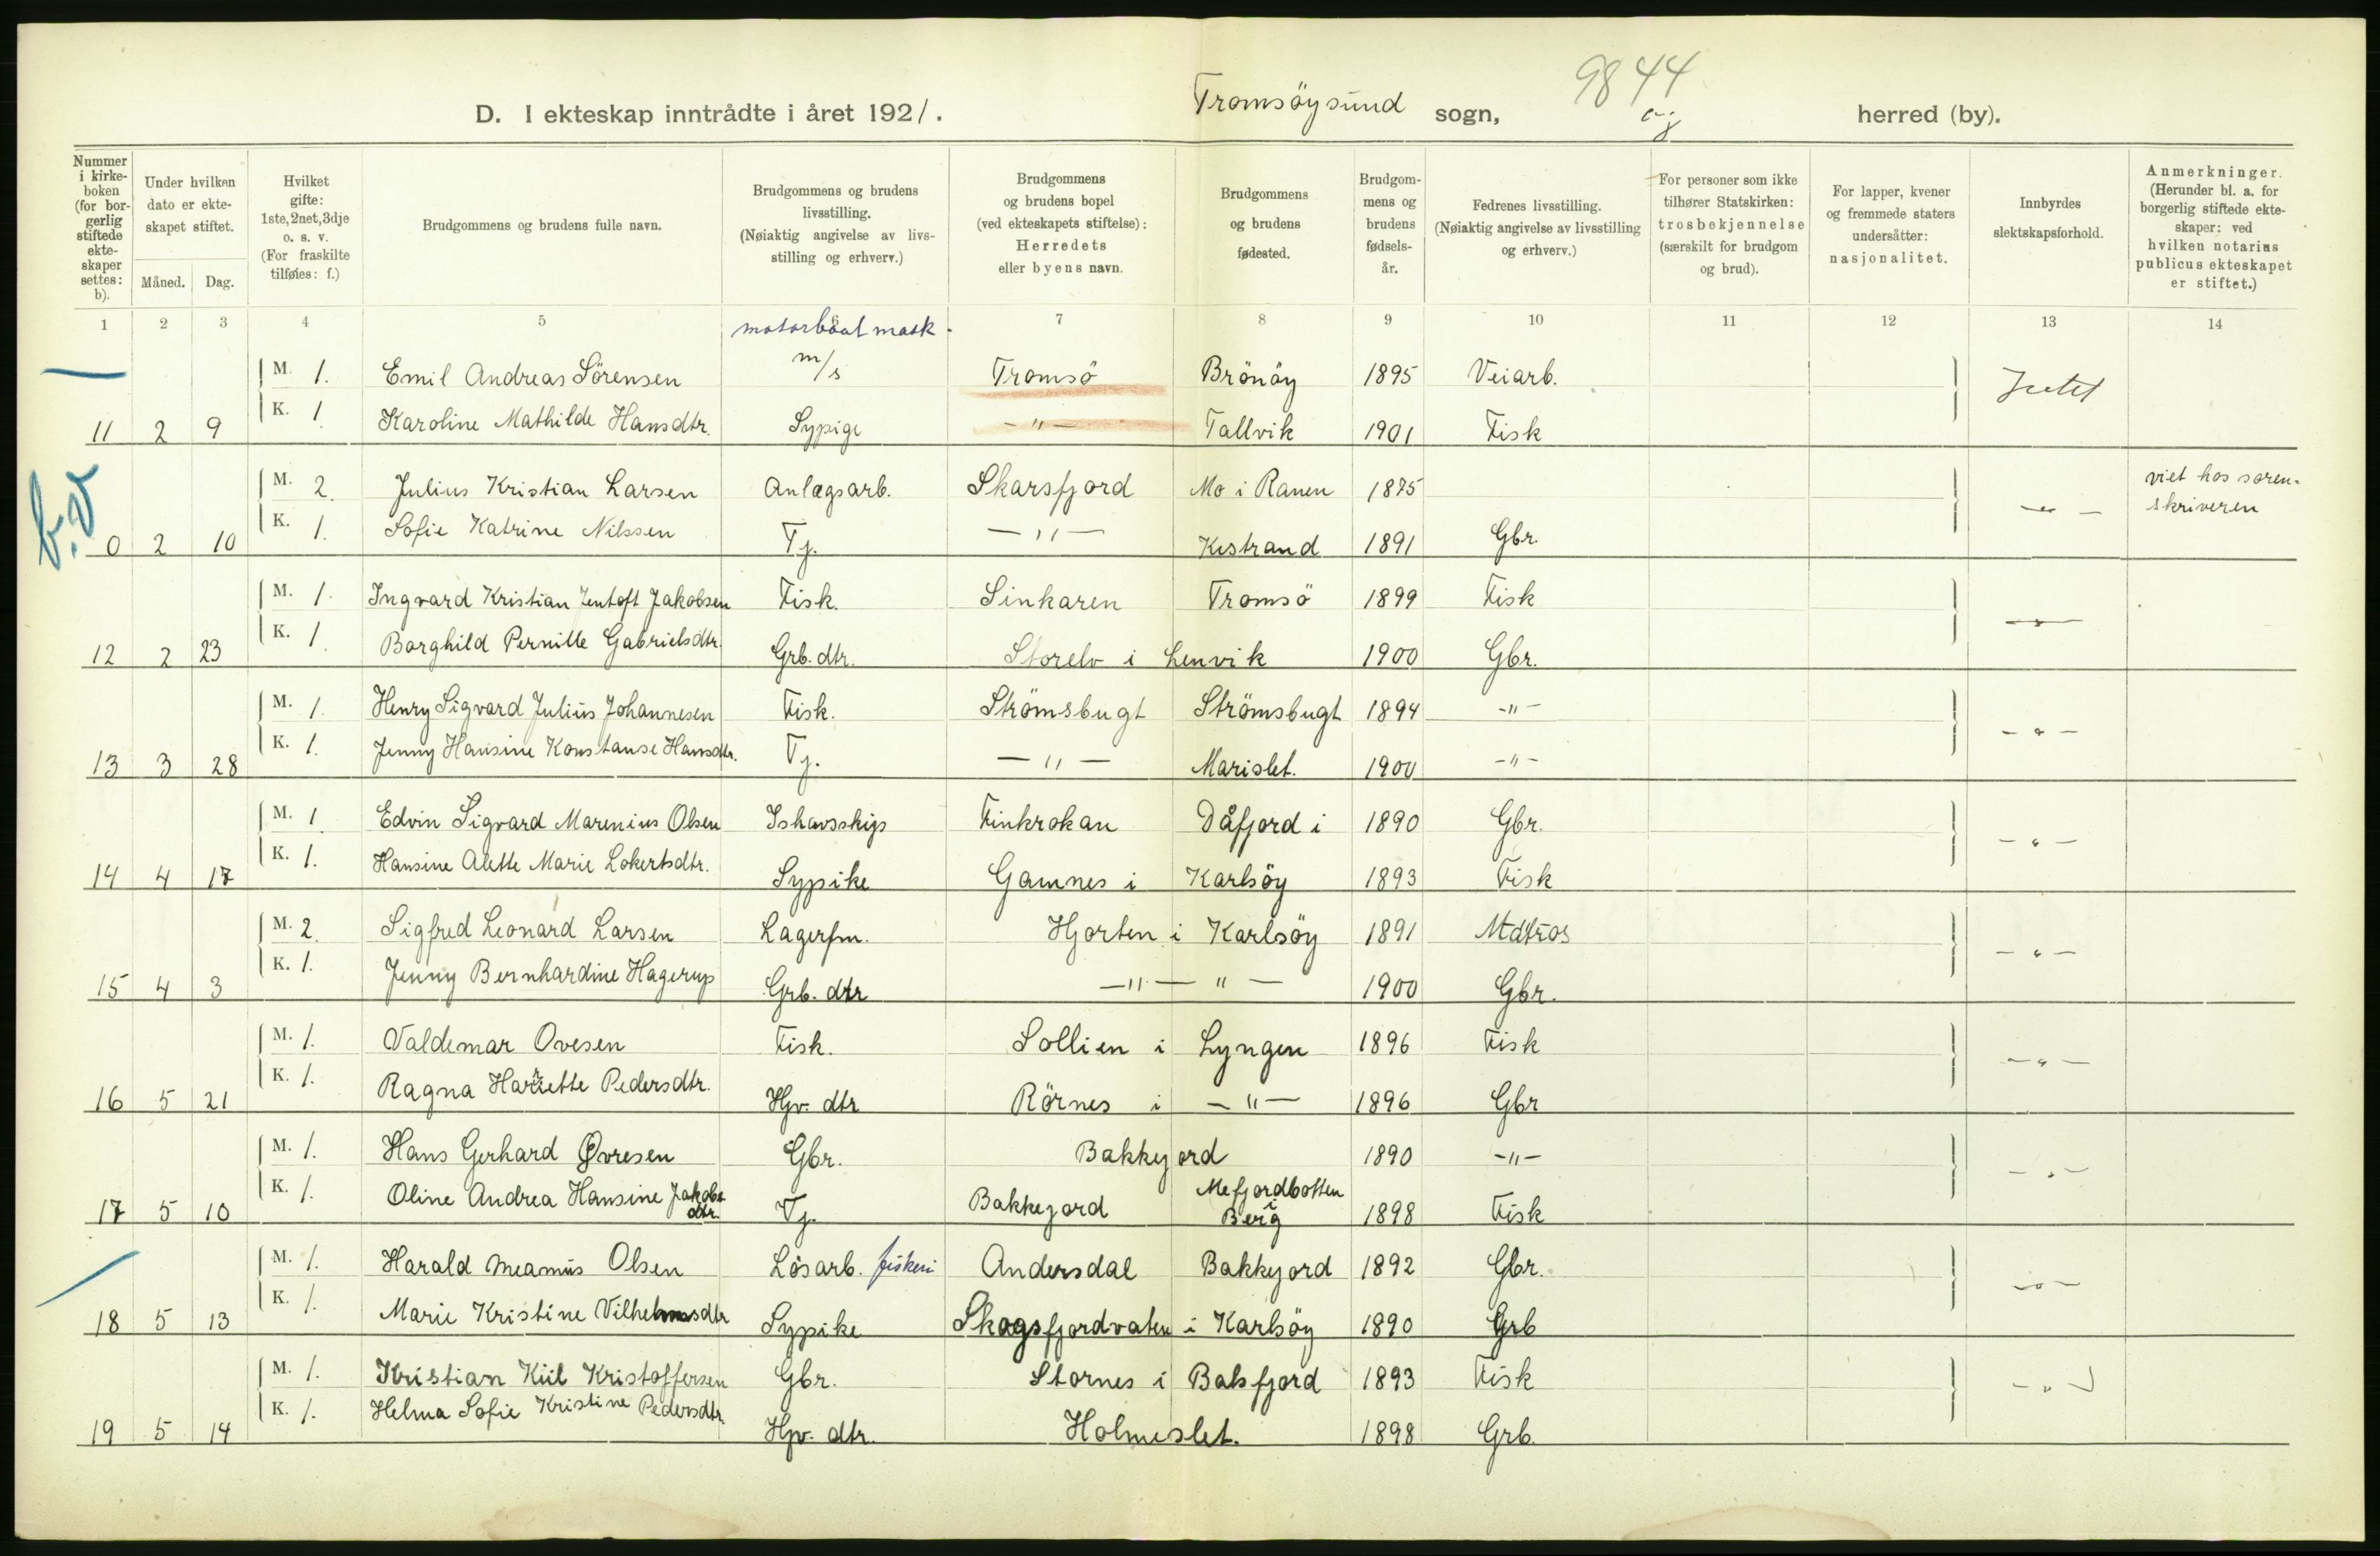 9844
D. I ekteskap inntrådte i året 1921. Tromsöysund sogn, herred (by).
Nummer i kirkeboken (for borgerlig stiftede ekteskaper settes: b).
Under hvilken dato er ekteskapet stiftet.
Måned. Dag.
Hvilket gifte: 1ste, 2net, 3dje o. s. v. (For fraskilte tilføies: f.)
Brudgommens og brudens fulle navn.
Brudgommens og brudens livsstilling. (Nøiaktig angivelse av livsstilling og erhverv.)
Brudgommens og brudens bopel (ved ekteskapets stiftelse): Herredets eller byens navn.
Brudgommens og brudens fødested.
Brudgommens og brudens fødselsår.
Fedrenes livsstilling. (Nøiaktig angivelse av livsstilling og erhverv.)
For personer som ikke tilhører Statskirken: trosbekjennelse (særskilt for brudgom og brud).
For lapper, kvener og fremmede staters undersåtter: nasjonalitet.
Innbyrdes slektskapsforhold.
Anmerkninger. (Herunder bl. a. for borgerlig stiftede ekteskaper: ved hvilken notarius publicus ekteskapet er stiftet.)
1 2 3 4 5 6 7 8 9 10 11 12 13 14
motorbåat mask.
M. 1. Emil Andreas Sörensen m/s Tromsö Brönöy 1895 Veiarb. Intet
11 2 9 K. 1 Karoline Mathilde Hansdtr. Sypige -"- Tallvik 1901 Fisk
b.v
M. 2. Julius Kristian Larsen Anlægsarb. Skarsfjord Mo i Ranen 1875 -"- viet hos soren=
skriveren
0 2 10 K. 1. Sofie Katrine Nilssen Tj. -"- Kistrand 1891 Gbr.
M. 1. Ingvard Kristian Jentoft Jakobsen Fisk. Sinkaren Tromsö 1899 Fisk -"-
12 2 23 K. 1. Borghild Pernille Gabrielsdtr. Grb. dtr. Storelv i Lenvik 1900 Gbr.
M. 1. Henry Sigvard Julius Johannesen Fisk. Strömsbugt Strömsbugt 1894 -"- -"-
13 3 28 K. 1. Jenny Hansine Konstanse Hansdtr. Tj. -"- Marislet. 1900 -"-
M. 1 Edvin Sigvard Marenius Olsen Ishavsskips Finkrokan Dåfjord i 1890 Gbr. -"-
14 4 17 K. 1. Hansine Alette Marie Lokertsdtr. Sypike Gamnes i Karlsöy 1893 Fisk
M. 2. Sigfred Leonard Larsen Lagerfm. Hjorten i Karlsöy 1891 Matros -"-
15 4 3 K. 1. Jenny Bernhardine Hagerup Grb. dtr -"- " - 1900 Gbr.
M. 1. Valdemar Ovesen Fisk. Sollien i Lyngen 1896 Fisk -"-
16 5 21 K. 1. Ragna Harriette Pedersdtr. Hjv. dtr Rörnes i -"- 1896 Gbr
M. 1. Hans Gerhard Øvresen Gbr. Bakkejord 1890 -"- -"-
17 5 10 K. 1. Oline Andrea Hansine Jakobsdtr. Tj. Bakkejord Mefjordbotten i Berg 1898 Fisk
M. 1. Harald Meamus Olsen Lösarb. fiskeri Andersdal Bakkejord 1892 Gbr. -"-
18 5 13 K. 1. Marie Kristine Vilhelmsdtr Sypike Skogsfjordvaten i Karlsöy 1890 Grb
M. 1. Kristian Kiil Kristoffersen Gbr. Stornes i Balsfjord 1893 Fisk -"-
19 5 14 K. 1. Helma Sofie Kristine Pedersdtr. Hjv. dtr. Holmeslet. 1898 Grb.